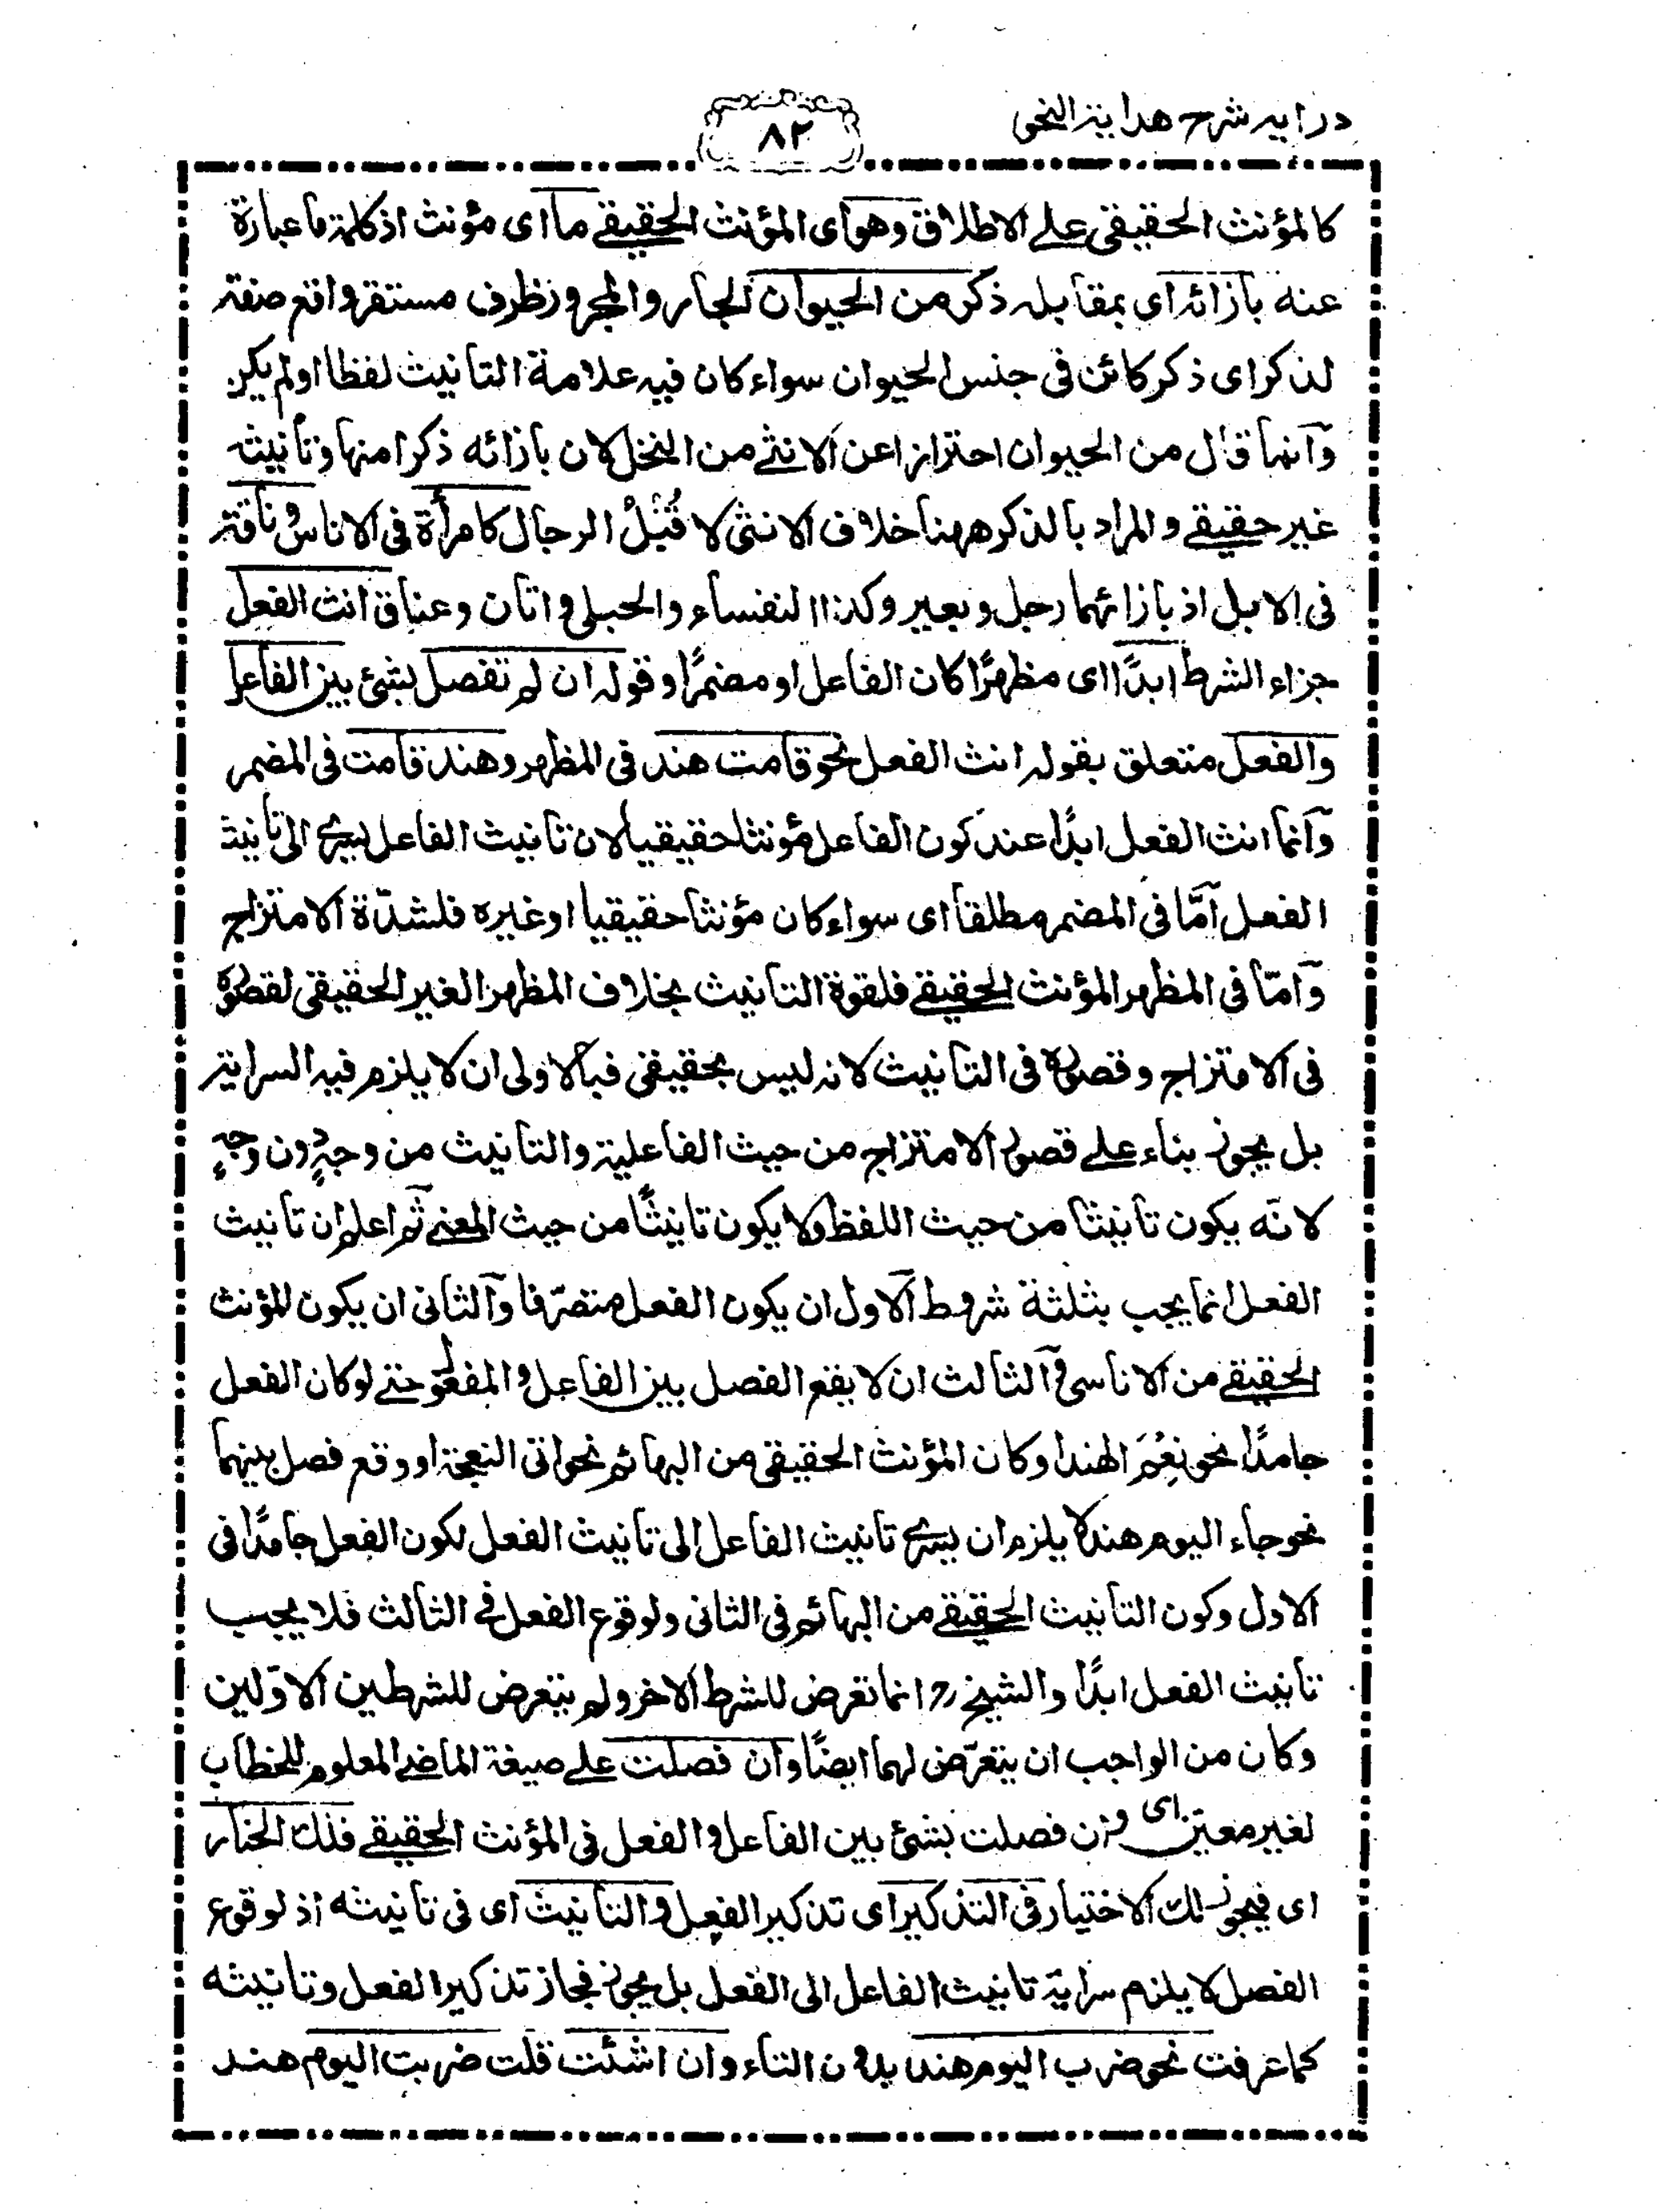 درايه شرح هداية النحو
٨٢
كالمؤنث الحقيقي على الاطلاق وهو اى المؤنث الحقيقي ما اى مؤنث اذ كلمة ما عبارة
عنه بازائه اى بمقابله ذكر من الحيوان الجار والمجرور ظرف مستقر واقع صفته
لذكر اى ذكر كائن فى جنس الحيوان سواء كان فيه علامة التأنيث لفظا اولم يكن
وآنما قال من الحيوان احترازا عن الانثى من النخل لان بازائه ذكرا منها وتأنيثه
غير حقيقي والمراد بالذكر ههنا خلاف الانثى لا قُبُلْ الرجال كامرأة فى الاناس وناقة
فى الابل اذ بازائهما رجل وبعير وكذا النفساء والحبلى واتان وعناق انث الفعل
جزاء الشرط ابدًا اى مظهرًا كان الفاعل او مضمرًا وقوله ان لم تفصل بشئ بين الفاعل
والفعل متعلق بقوله انث الفعل نحو قامت هند فى المظهر وهند قامت فى المضمر
وآنما انث الفعل ابدًا عند كون الفاعل مؤنثا حقيقيا لان تأنيث الفاعل يسرى الى تأنيث
الفعل آمّا فى المضمر مطلقا اى سواء كان مؤنثا حقيقيا او غيره فلشدّة الامتزاج
وآمّا فى المظهر المؤنث الحقيقي فلقوة التأنيث بخلاف المظهر الغير الحقيقى لقصوره
فى الامتزاج وقصوره فى التأنيث لانه ليس بحقيقى فبالاولى ان لا يلزم فيه السراية
بل يجوز بناء على قصور الامتزاج من حيث الفاعلية والتأنيث من وجهٍ دون وجهٍ
لانّه يكون تأنيثا من حيث اللفظ ولا يكون تأنيثًا من حيث المعنى ثم اعلم ان تأنيث
الفعل انما يجب بثلثة شروط آلاول ان يكون الفعل متصرّفا وآلثانى ان يكون للمؤنث
الحقيقي من الاناسى وآلثالث ان لا يقع الفصل بين الفاعل والمفعول حتى لو كان الفعل
جامدًا نحو نِعْمَ الهند او كان المؤنث الحقيقى من البهائم نحو اتى النعجة او وقع فصل بينهما
نحو جاء اليوم هند لا يلزم ان يسرى تأنيث الفاعل الى تأنيث الفعل لكون الفعل جامدًا فى
الاول وكون التأنيث الحقيقي من البهائم فى الثانى ولوقوع الفعل فى الثالث فلا يجب
تأنيث الفعل ابدًا والشيخ رح انما تعرض للشرط الاخر ولم يتعرض للشرطين الاوّلين
وكان من الواجب ان يتعرّض لهما ايضًا وان فصلت على صيغة الماضى المعلوم للخطاب
لغير معين اى وان فصلت بشئ بين الفاعل والفعل فى المؤنث الحقيقي فلك الخيار
اى فيجوز لك الاختيار فى التذكير اى تذكير الفعل والتأنيث اى فى تأنيثه اذ لوقوع
الفصل لا يلزم سراية تأنيث الفاعل الى الفعل بل يجوز فجاز تذكير الفعل وتأنيثه
كما عرفت نحو ضرب اليوم هند بدون التاء وان اشئت قلت ضربت اليوم هند